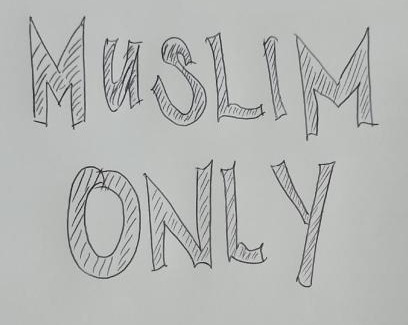 MUSLIM
ONLY